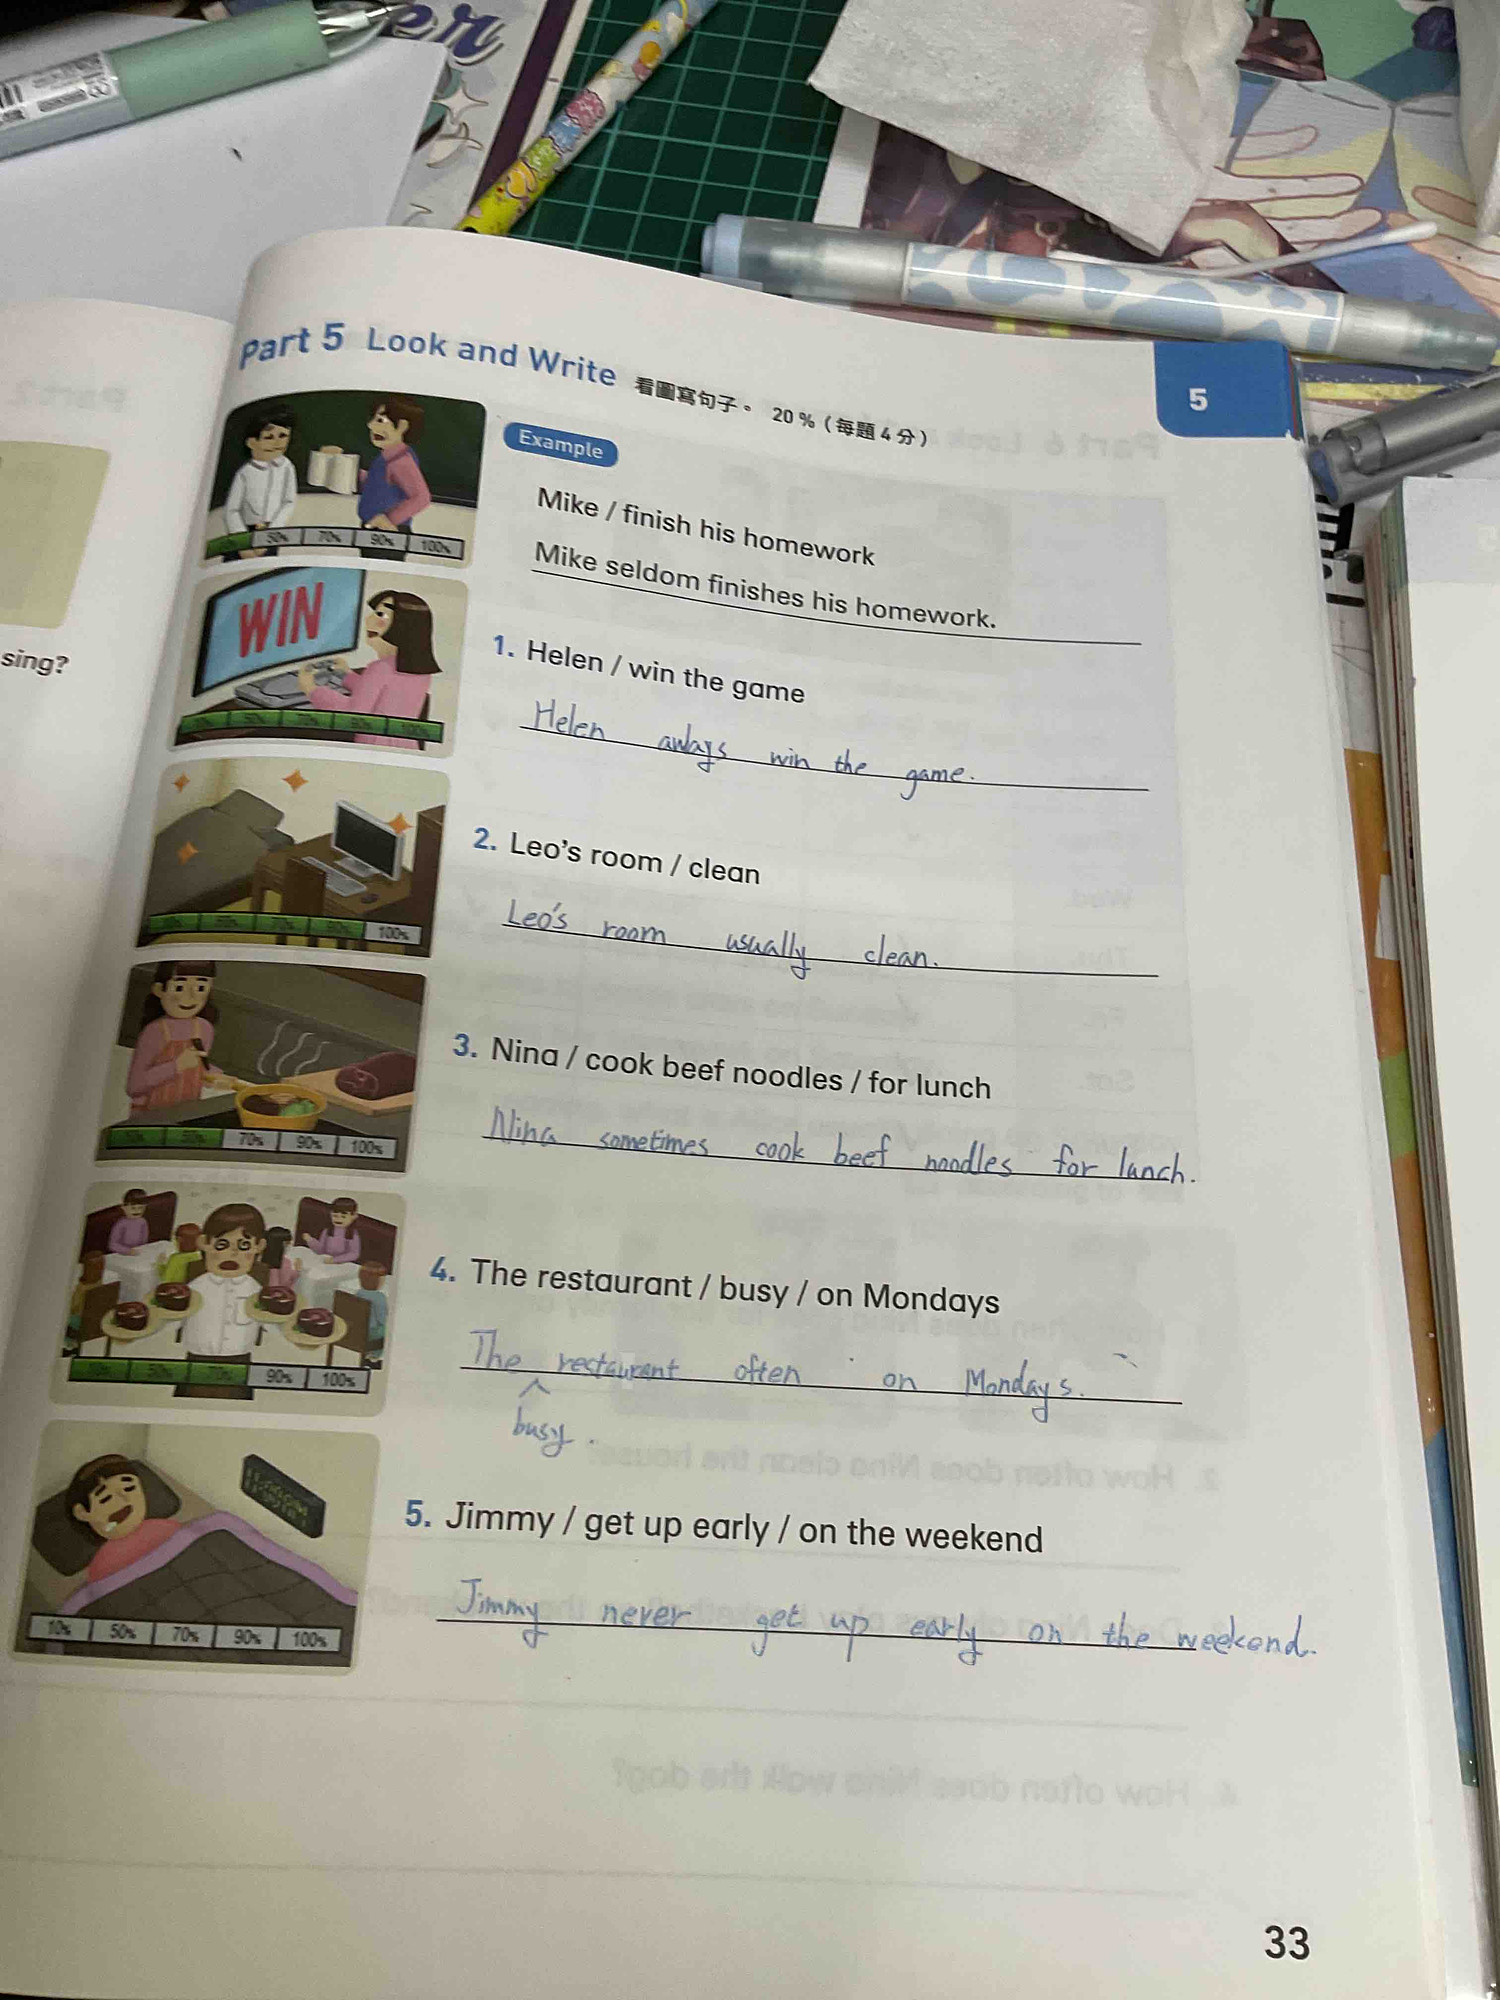 er
Part 5 Look and Write 看圖寫句子。 20%(每題4分)
5
Example
Mike / finish his homework
50% 70% 90% 100%
Mike seldom finishes his homework.
WIN
sing?
1. Helen / win the game
Helen aways win the game.
2. Leo's room / clean
Leo's room usually clean.
100%
3. Nina / cook beef noodles / for lunch
Nina sometimes cook beef noodles for lunch.
70% 90% 100%
4. The restaurant / busy / on Mondays
The restaurant often on Mondays.
90% 100%
busy
5. Jimmy / get up early / on the weekend
Jimmy never get up early on the weekend.
10% 50% 70% 90% 100%
33